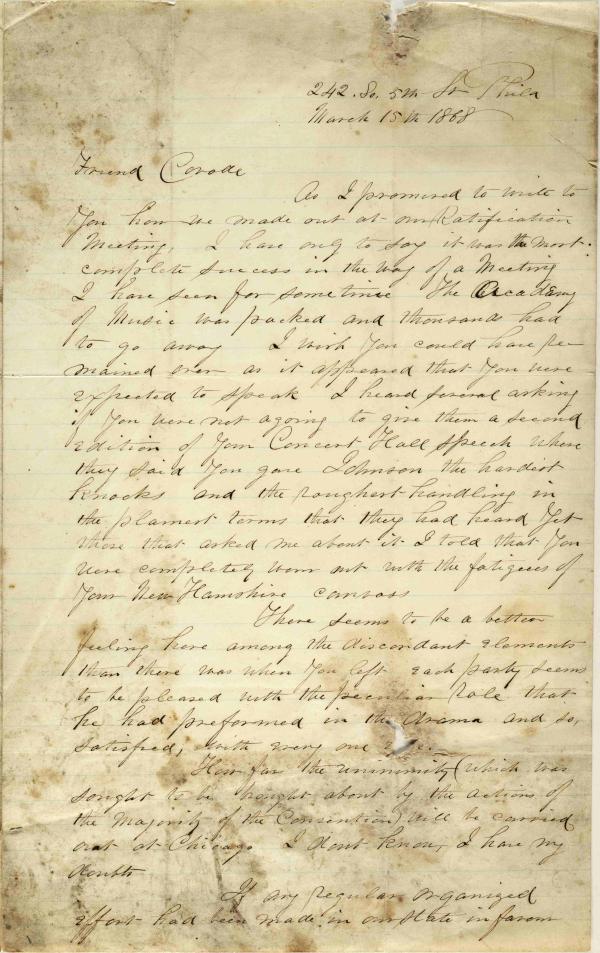 242. So. 5th St Phila
March 15th 1868
Friend Covode
As I promised to write to
You how we made out at our Ratification
Meeting, I have only to say it was the most
complete success in the way of a Meeting
I have seen for sometime The Academy
of Music was packed and thousands had
to go away I wish You could have re-
mained over as it appeared that You were
expected to speak I heard several asking
if You were not agoing to give them a second
edition of Your Concert Hall speech where
they said You gave Johnson the hardest
knocks and the roughest handling in
the plainest terms that they had heard Yet
those that asked me about it I told that You
were completely worn out with the fatigues of
Your New Hamshire canvass
There seems to be a better
feeling here among the discordant elements
than there was when You left each party seems
to be pleased with the peculiar role that
he had preformed in the drama and so,
satisfied, with every one
How far the unimity (which was
sought to be brought about by the actions of
the Majority of the Convention) will be carried
out at Chicago I dont know, I have my
doubts
If any regular organized
effort had been made in our State in favour